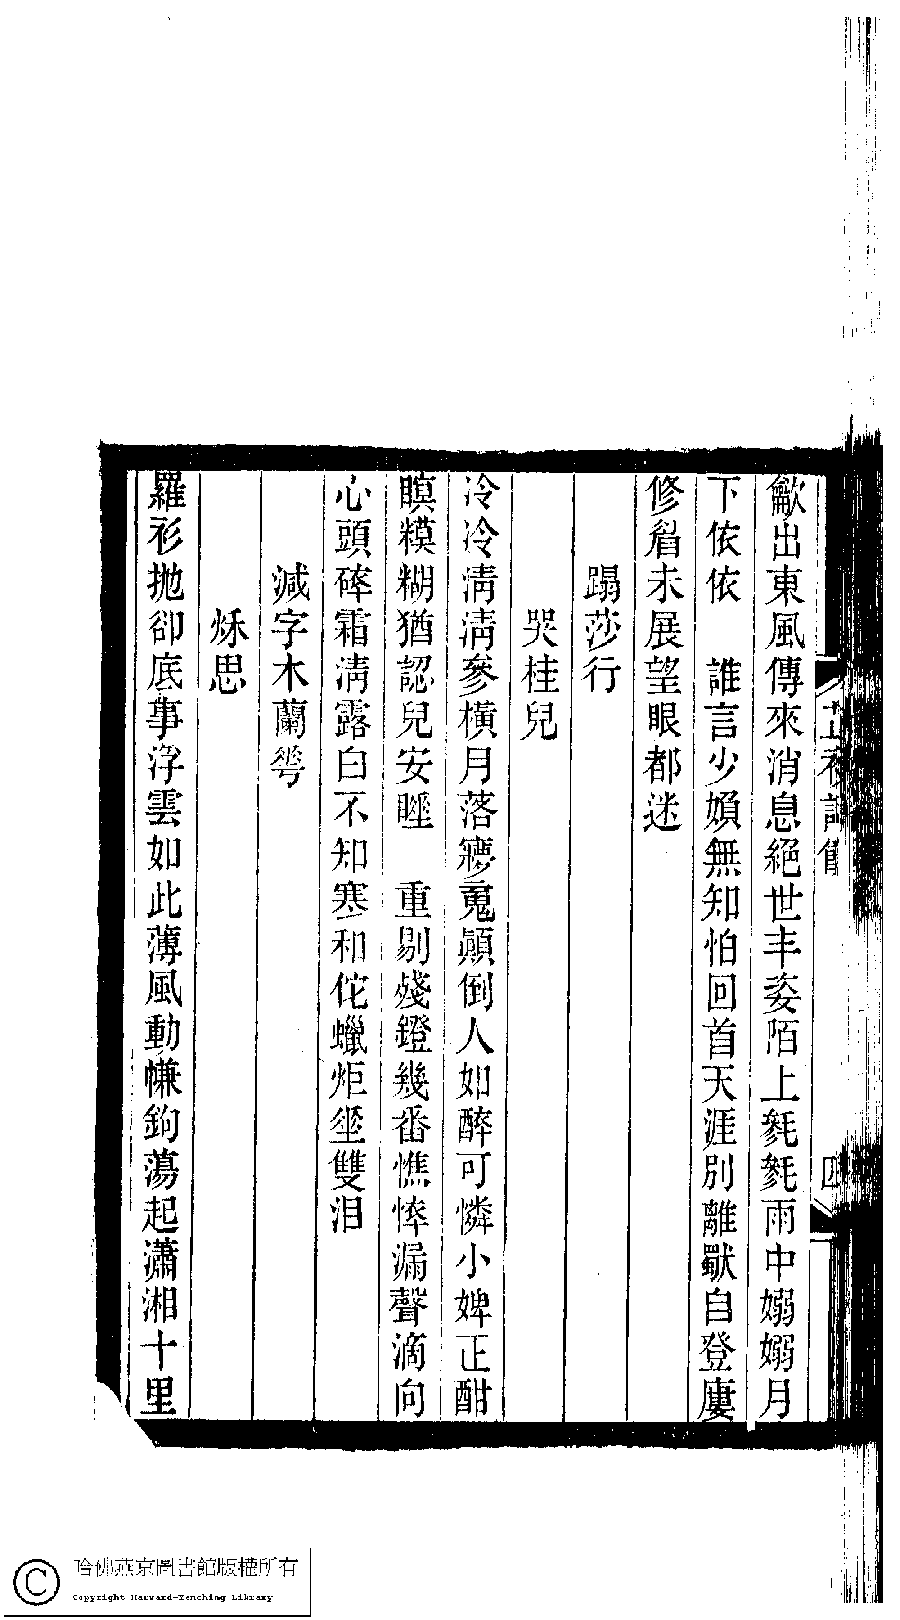 歙出東風傳來消息絕世丰姿陌上毿毿雨中嫋嫋月
下依依　誰言少婦無知怕回首天涯別離獣自登廔
修眉未展望眼都迷
蹋莎行
哭桂兒
冷冷清清參橫月落㝱䰟顚倒人如醉可憐小婢正酣
瞑糢糊猶認兒安睡　重剔殘鐙幾番憔悴漏聲滴向
心頭碎霜淸露白不知寒和佗蠟炬坐雙泪
減字木蘭蕚
秌思
羅衫抛卻底事浮雲如此薄風動㡘鉤蕩起瀟湘十里
四
哈佛燕京圖書館版權所有
Copyright Harvard-Yenching Library